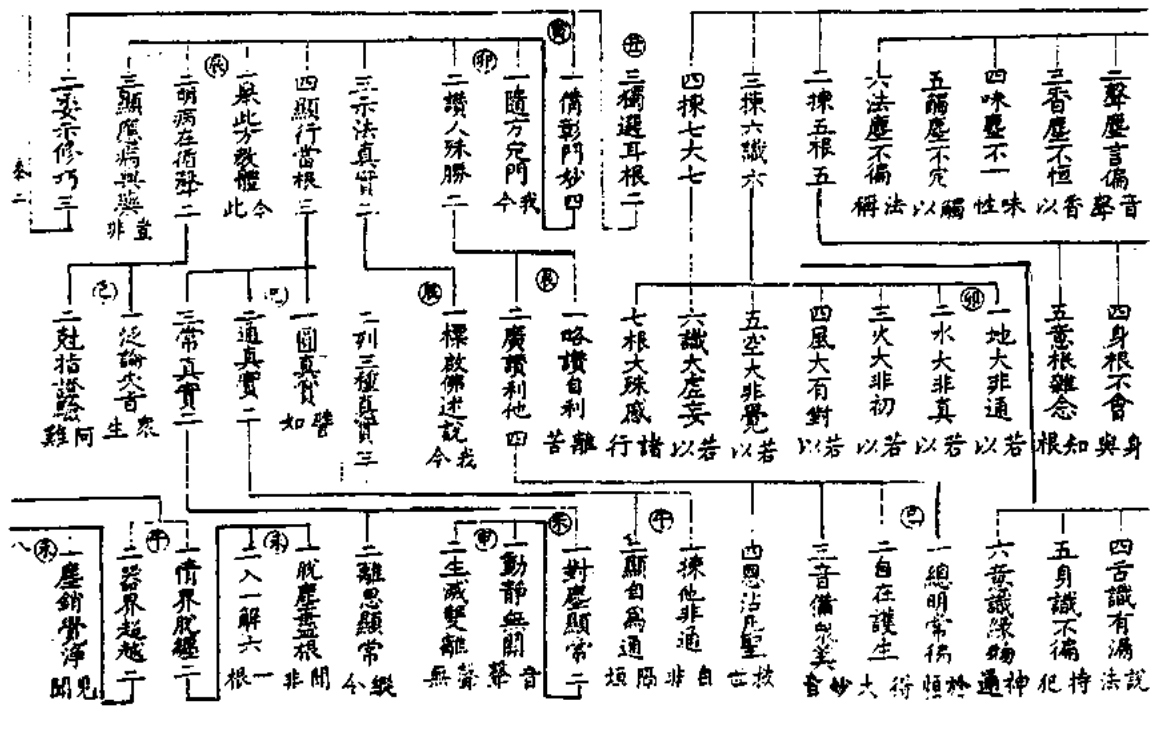 二聲塵言偏 音聲
三香塵不恒 香以
四味塵不一 味性
五觸塵不定 觸以
六法塵不徧 法稱
二揀五根五
三揀六識六
四揀七大七
丑
三獨選耳根二
寅
一備彰門妙四
卯
一隨方定門 我今
二讚人殊勝二
三示法真實二
四顯行當根三
辰
一祭此方教體 今此
二明病在循聲二
三顯應病與藥 豈非
二委示修巧三
卷二
四身根不會 身與
五意根雜念 知根
卯
一地大非通 若以
二水大非真 若以
三火大非初 若以
四風大有對 若以
五空大非覺 若以
六識大虛妄 若以
七根大殊感 諸行
辰
一略讚自利 離苦
二廣讚利他四
辰
一標啟佛述說 我今
二列三種真實三
巳
一圓真實 譬如
二通真實二
三常真實二
巳
一泛論大旨 眾生
二尅指證驗 阿難
四舌識有漏 說法
五身識不徧 持犯
六意識緣物 神通
巳
一總明常倘 於恒
二自在護生 得大
三音備眾美 妙音
四恩沾凡聖 救世
午
一揀他非通 自非
二顯自為通 隔垣
未
一對塵顯常二
申
一動靜無關 音聲
二生滅雙離 聲無
二離思顯常 縱今
未
一脫塵盡根 聞非
二入一解六 一根
午
一情界脫纏二
二器界超越二
未
一塵銷覺淨 見聞
八